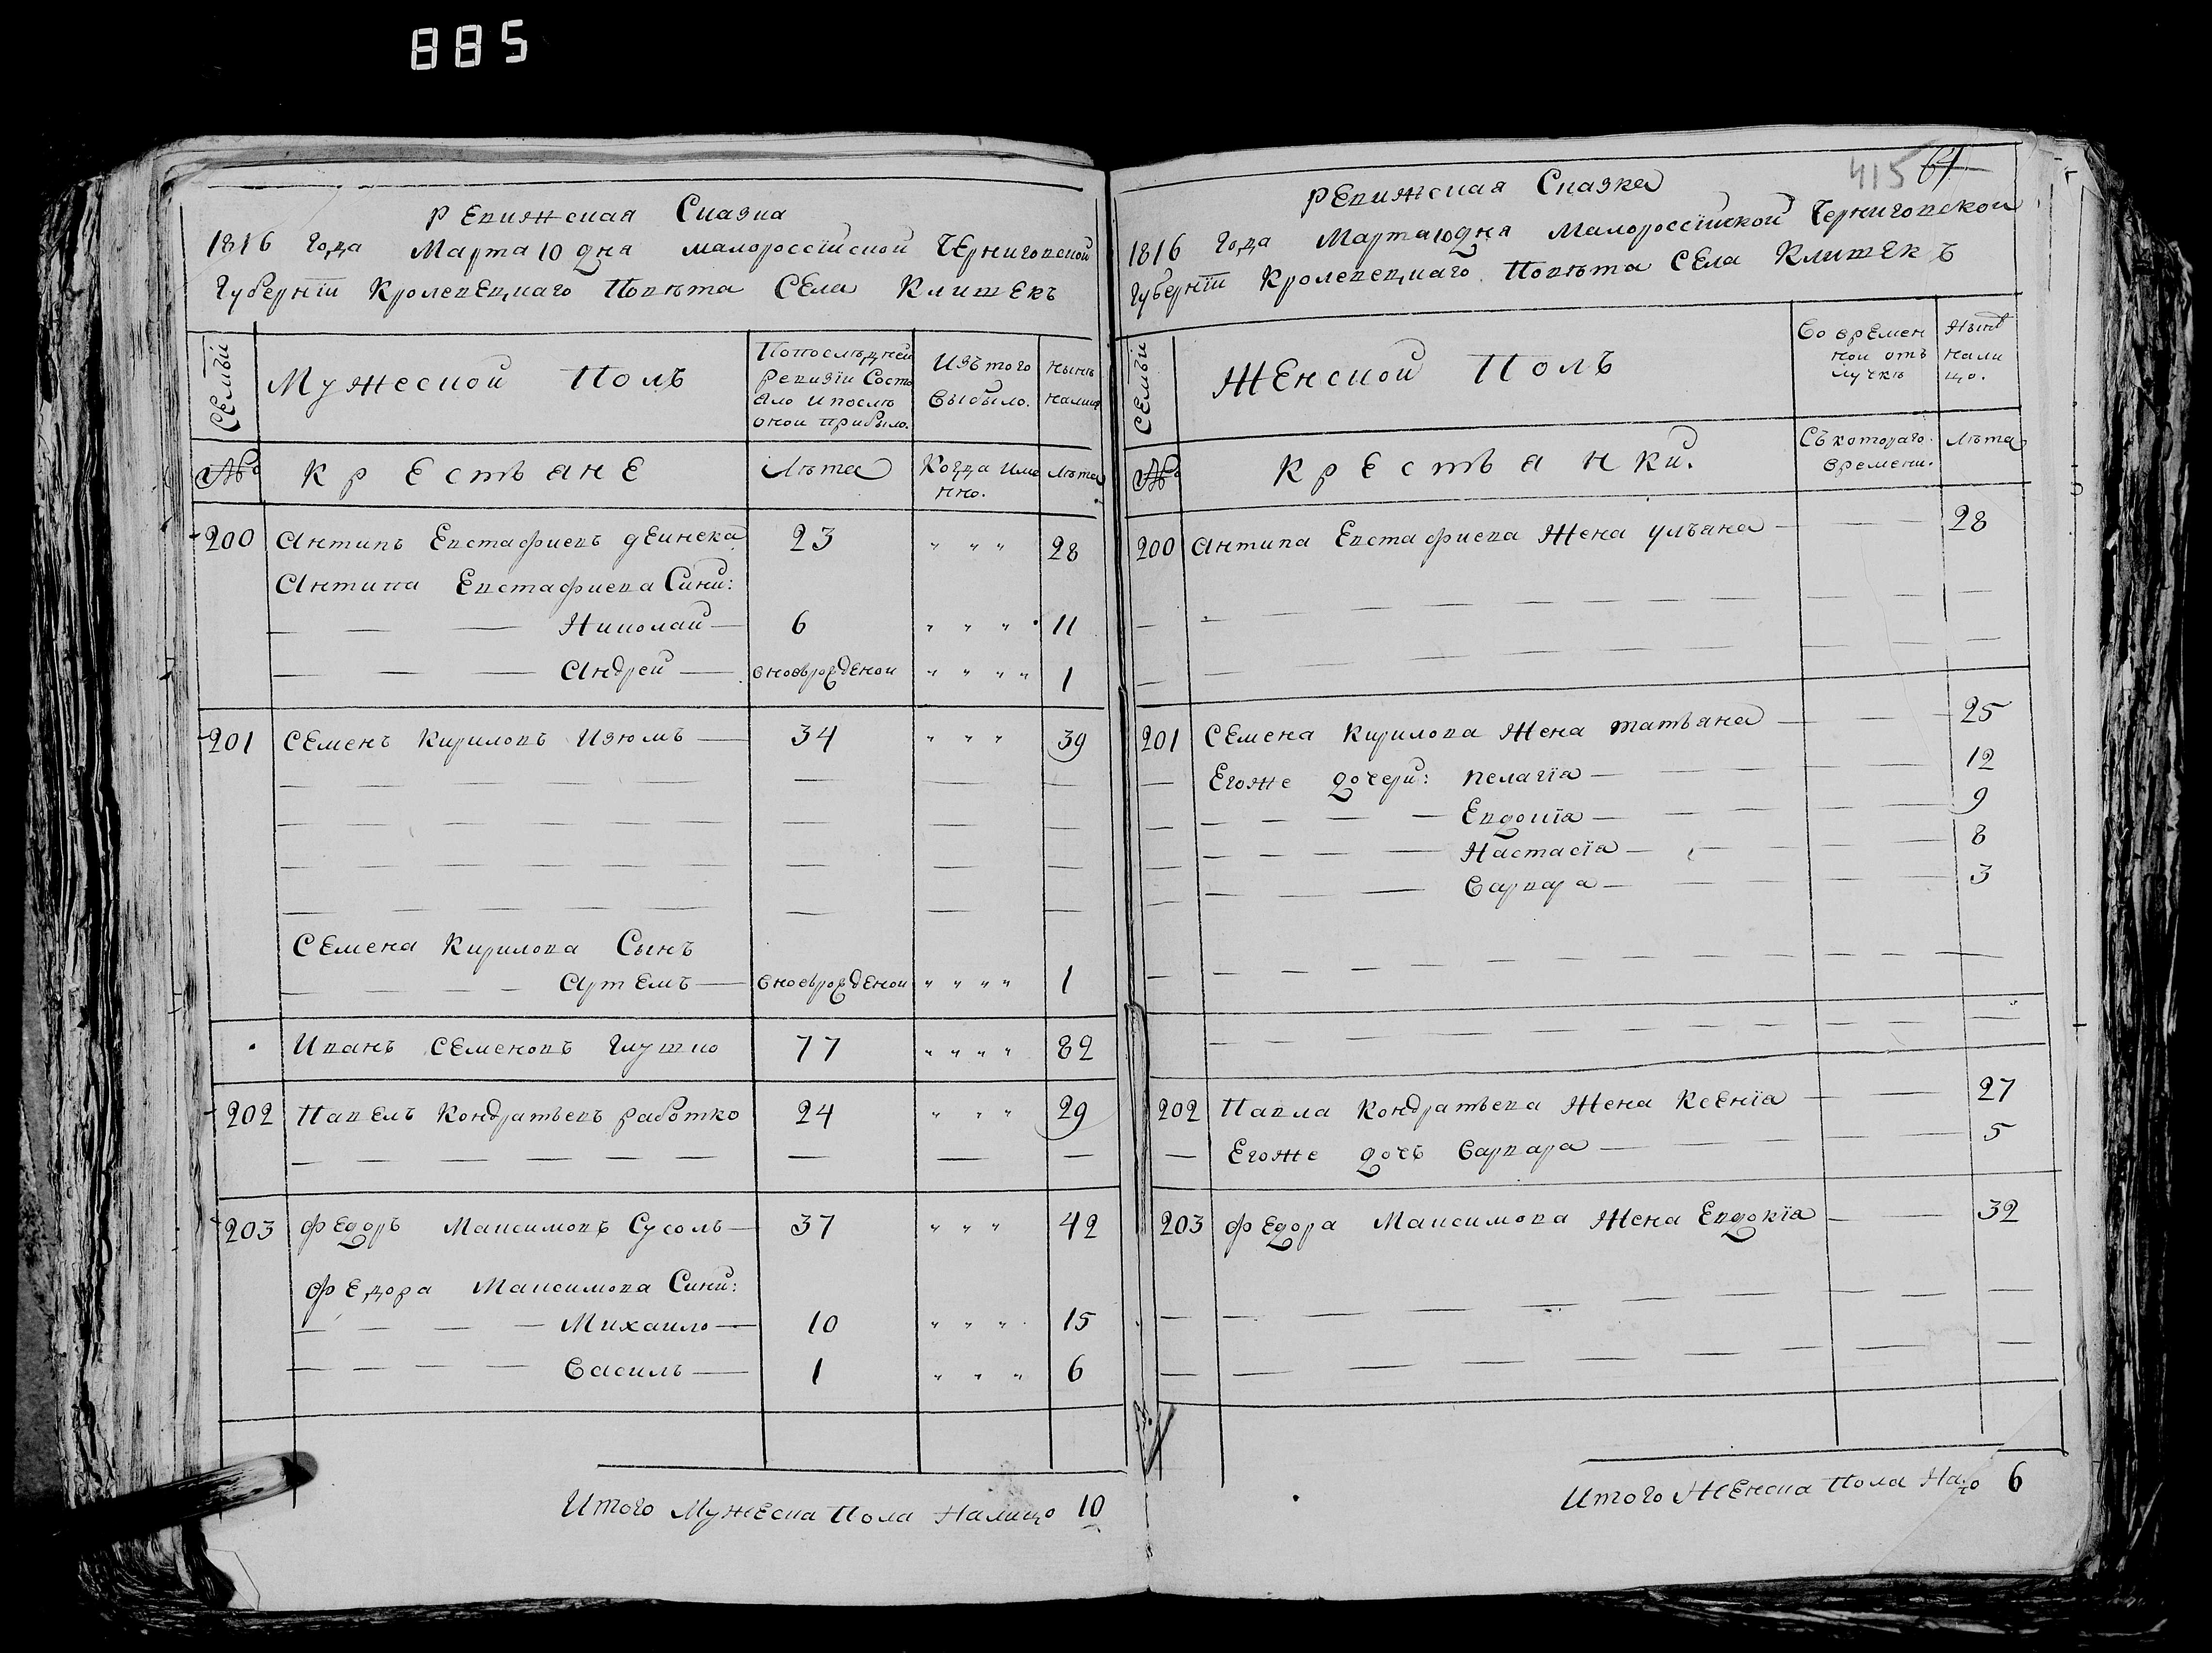 885
Ревижская Сказка
1816 Года Марта 10 дня малороссійской Черниговской
Губерніи Кролевецкаго Повѣта Села Клишекъ
Семьи
Мужеской Полъ
По последней
ревизіи Состо
яло и послѣ
оной прибыло.
Изъ того
выбыло.
Нынѣ
налицо
№
Крестьяне
Лѣта
Когда име
нно.
Лѣта
200 Антипъ Евстафиевъ дейнека 23 " " " 28
Антипа Евстафиева Сини:
— — — Николай — 6 " " " 11
— — — Андрей — вноврожденой " " " " 1
201 Семенъ Кириловъ Изюмъ — 34 " " " 39
Семена Кирилова Сынъ
— — — — Артемъ — вноврожденой " " " " 1
Иванъ Семеновъ Глушко 77 " " " " 82
202 Павелъ Кондратьевъ работко 24 " " " 29
203 Федоръ Максимовъ Сусоль — 37 " " " 42
Федора Максимова Сини:
— — — — Михаило — 10 " " " 15
— — — — Василь — 1 " " " 6
Итого Мужеска Пола Налицо 10
415 64
Ревижская Сказка
1816 Года Марта 10 дня Малороссійской Черниговской
Губерніи Кролевецкаго Повѣта Села Клишекъ
Семьи
Женской Полъ
Во времен
ной отъ
лучкѣ
Нынѣ
нали
цо.
№
Крестьянки.
Съ котораго
времени.
Лѣта
200 Антипа Евстафиева Жена ульяна — — — 28
201 Семена Кирилова Жена татьяна — — — 25
— Егоже дочери: пелагія — — — 12
— — — — — Евдокія — — — 9
— — — — — Настасія — — — 8
— — — — Варвара — — — 3
202 Павла Кондратьева Жена Ксенія — — — 27
— Егоже дочь Варвара — — — 5
203 Федора Максимова Жена Евдокія — — 32
Итого Женска Пола На:цо 6